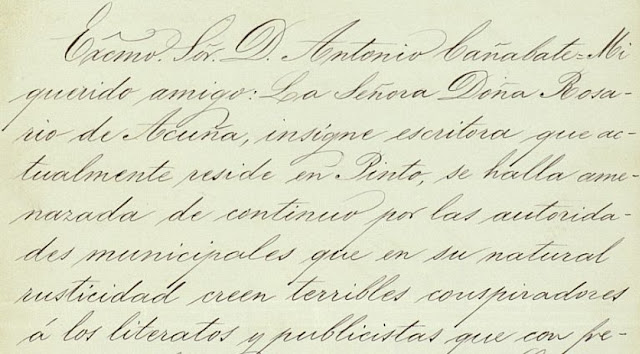 Exc̃mo. Sõr. D. Antonio Cañabate=Mi
querido amigo: La Señora Doña Rosa-
rio de Acuña, insigne escritora que ac-
tualmente reside en Pinto, se halla ame-
nazada de continuo por las autorida-
des municipales que en su natural
rusticidad creen terribles conspiradores
á los literatos y publicistas que con fre-